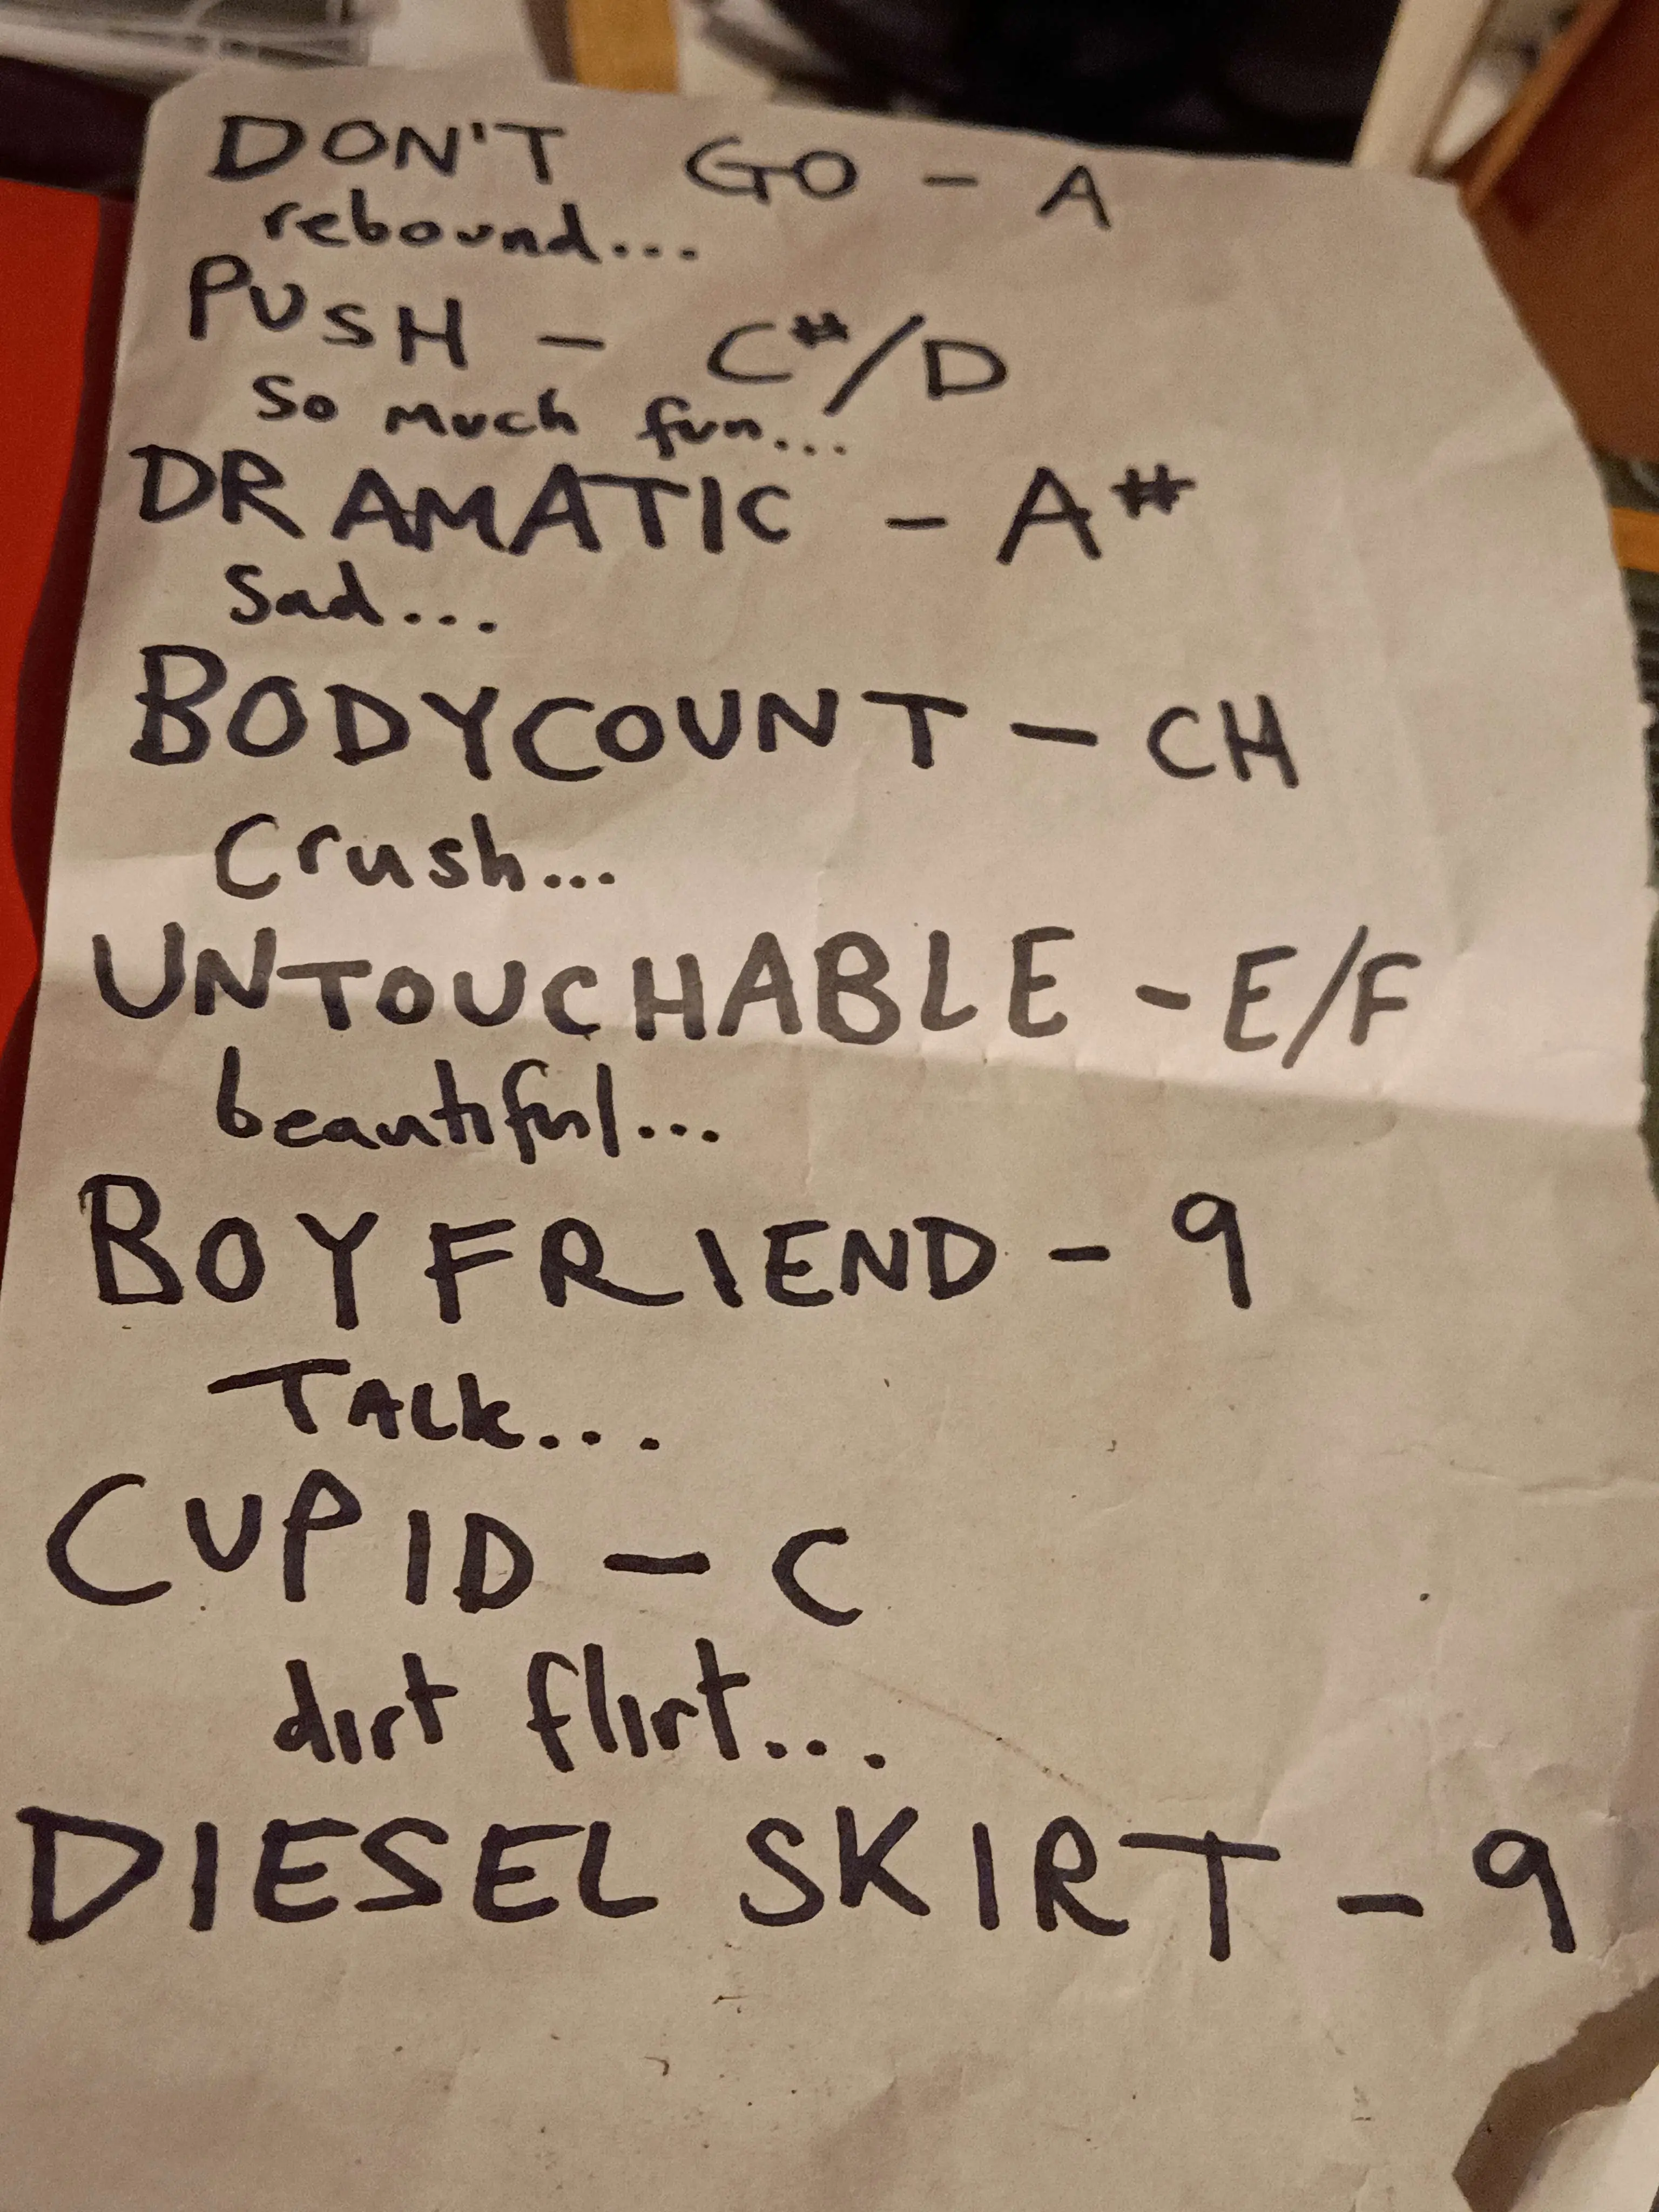 DON'T GO - A
rebound...
PUSH - C#/D
so much fun...
DRAMATIC - A#
Sad...
BODYCOUNT - CH
Crush...
UNTOUCHABLE - E/F
beautiful...
BOYFRIEND - 9
TALK...
CUPID - C
dirt flirt...
DIESEL SKIRT - 9